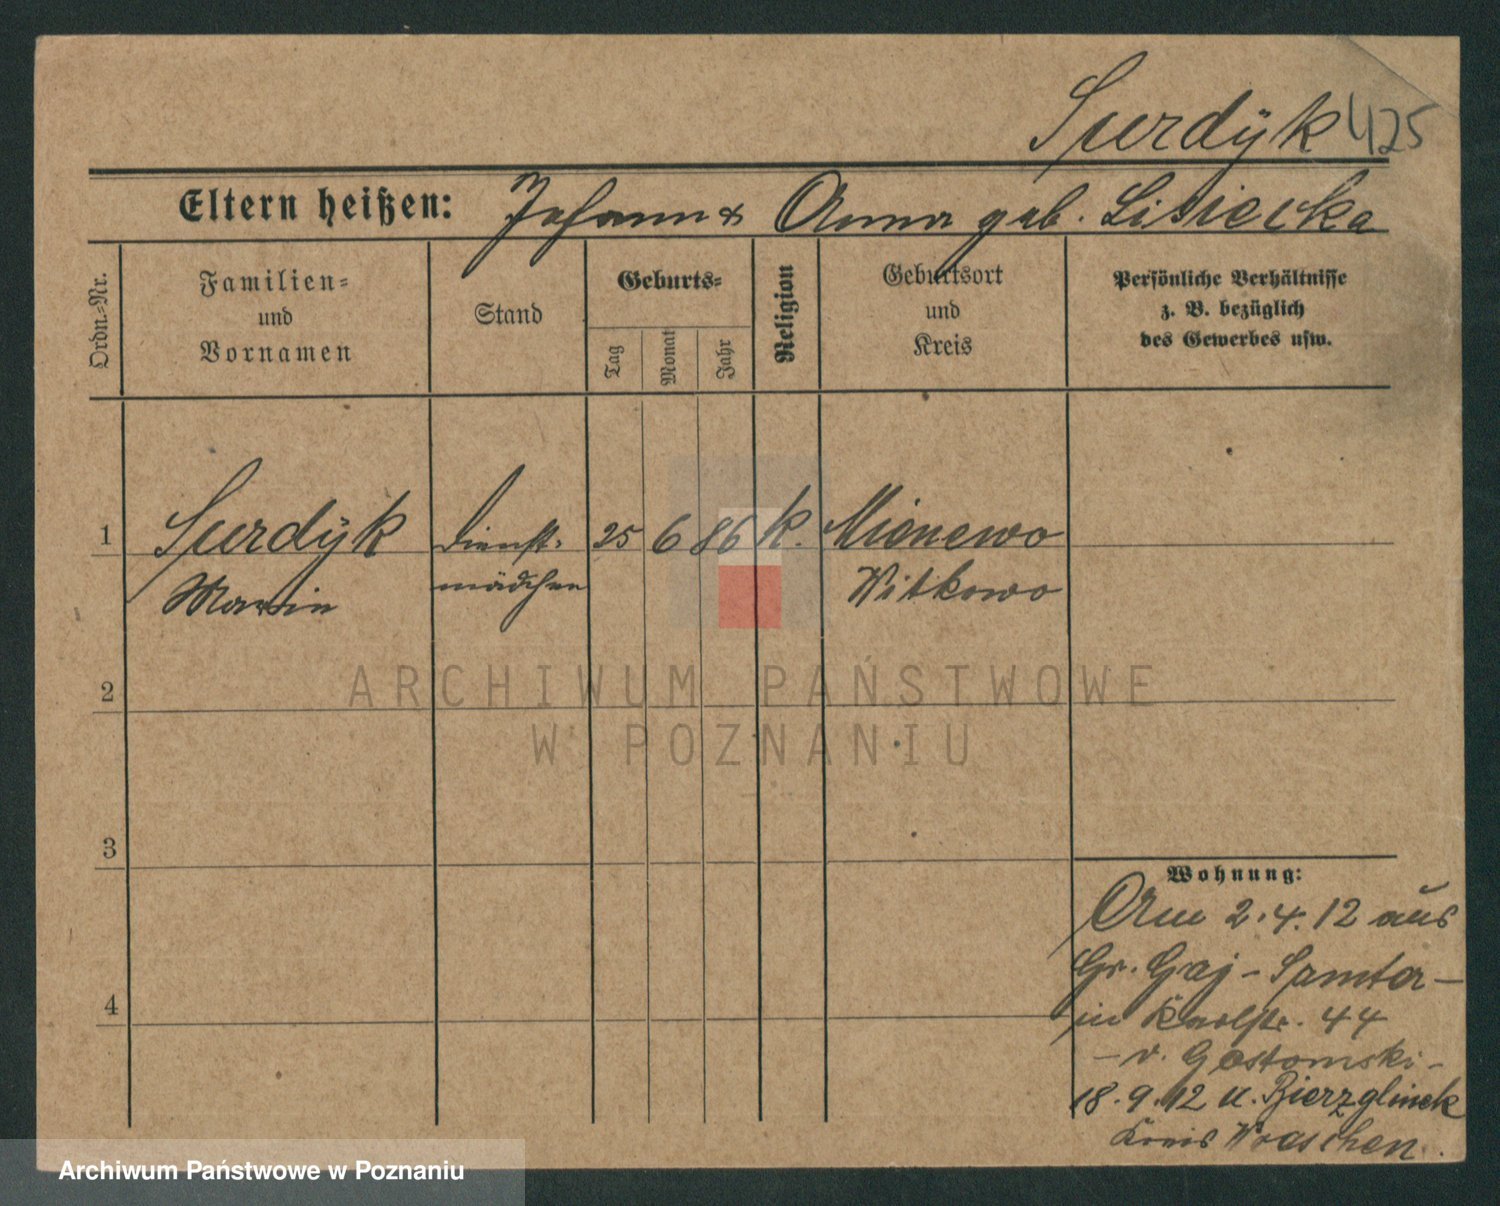 Surdÿk 425
Eltern heißen: Johann & Anna geb. Lisiecka
Ordn.-Nr.
Familien-
und
Vornamen
Stand
Geburts-
Tag
Monat
Jahr
Religion
Geburtsort
und
Kreis
Persönliche Verhältnisse
z. B. bezüglich
des Gewerbes usw.
1 Surdÿk Dienst- 25 6 86 k. Mionewo
Marie mädchen Witkowo
ARCHIWUM PAŃSTWOWE
W POZNANIU
2
3
4
Wohnung:
Am 2.4.12 aus
Gr. Gaj - Samter -
in Karlstr. 44
- v. Gostomski -
18.9.12 n. Bierzglinek
Kreis Wreschen.
Archiwum Państwowe w Poznaniu